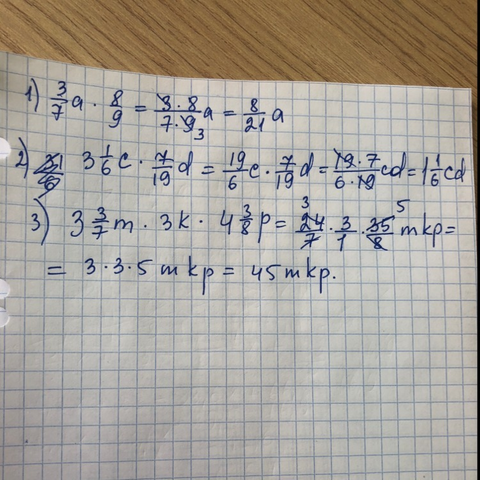 1) 3/7 a · 8/9 = 3·8/7·9 3 a = 8/21 a
2) 3 1/6 c · 7/19 d = 19/6 c · 7/19 d = 19·7/6·19 cd = 1 1/6 cd
3) 3 3/7 m · 3k · 4 3/8 p = 3 24/7 · 3/1 · 35/8 5 mkp =
= 3·3·5 mkp = 45 mkp.